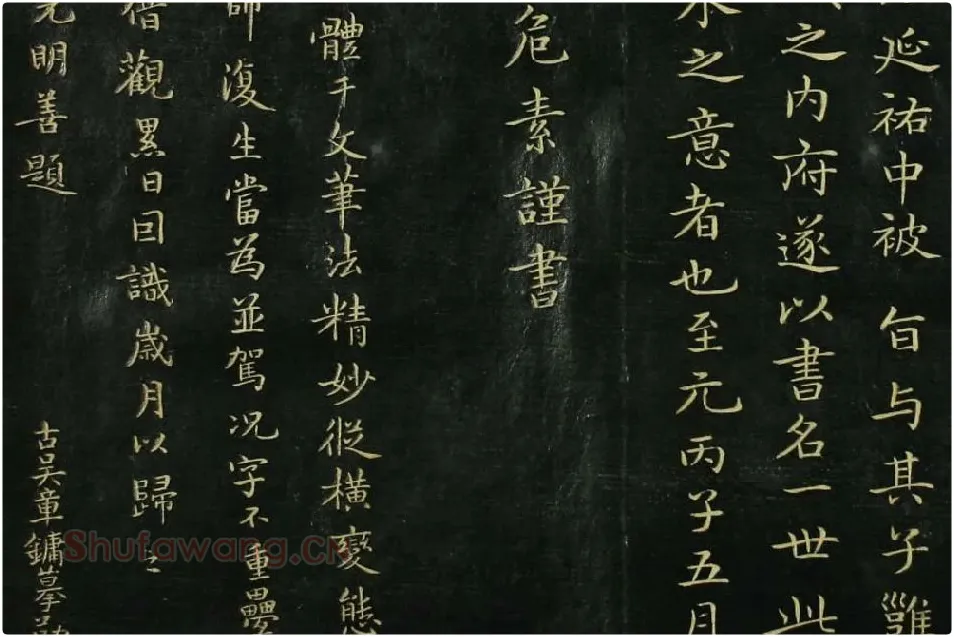 延祐中被 旨与其子雖
之内府遂以書名一世此
之意者也至元丙子五月
危素謹書
體千文筆法精妙從橫變態
師復生當為並駕况字不重疊
借觀累日因識歲月以歸之
元明善題
古吴章鏞摹
Shufawang.CN